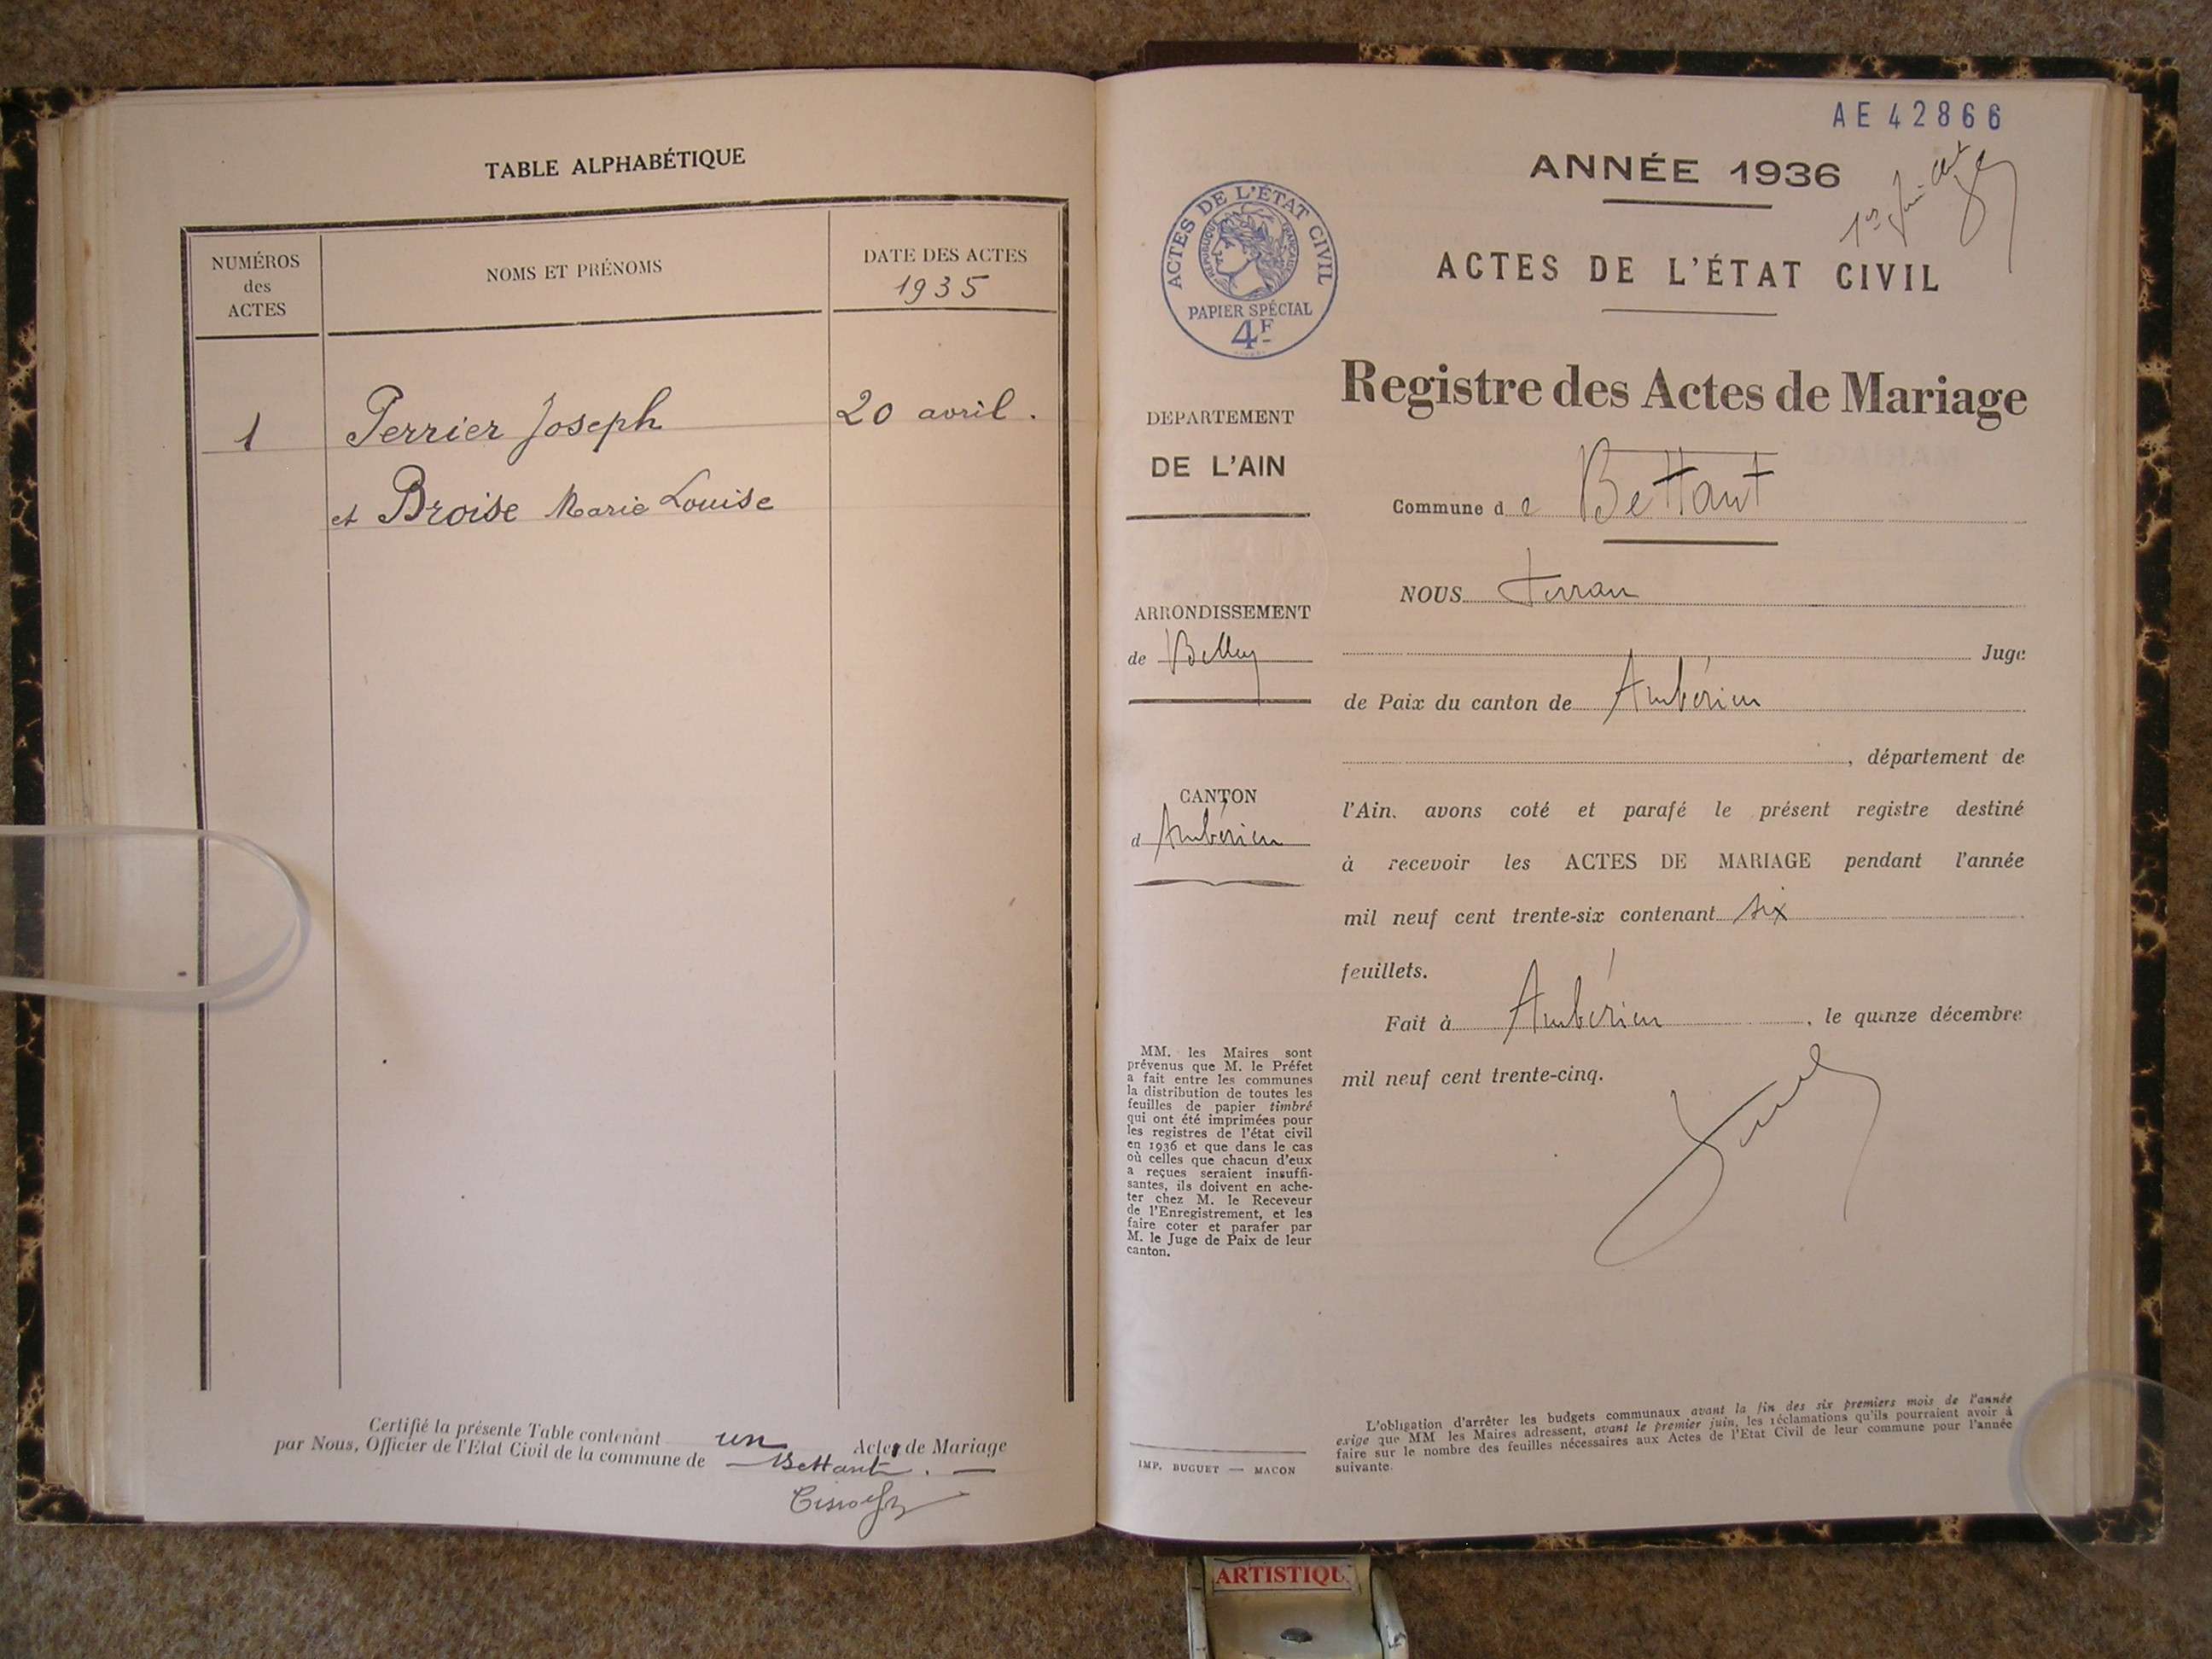 TABLE ALPHABÉTIQUE
NUMÉROS
des
ACTES
NOMS ET PRÉNOMS
DATE DES ACTES
1935
1
Perrier Joseph
20 avril.
et Broise Marie Louise
Certifié la présente Table contenant un Actes de Mariage
par Nous, Officier de l'Etat Civil de la commune de Bettant.
AE 42866
ANNÉE 1936
ACTES DE L'ÉTAT CIVIL
RÉPUBLIQUE FRANÇAISE
PAPIER SPÉCIAL
4F
ACTES DE L'ÉTAT CIVIL
Registre des Actes de Mariage
DEPARTEMENT
DE L'AIN
ARRONDISSEMENT
de Belley
CANTON
d Ambérieu
MM. les Maires sont
prévenus que M. le Préfet
a fait entre les communes
la distribution de toutes les
feuilles de papier timbré
qui ont été imprimées pour
les registres de l'état civil
en 1936 et que dans le cas
où celles que chacun d'eux
a reçues seraient insuffi-
santes, ils doivent en ache-
ter chez M. le Receveur
de l'Enregistrement, et les
faire coter et parafer par
M. le Juge de Paix de leur
canton.
IMP. BUGUET — MACON
Commune de Bettant
NOUS
Juge
de Paix du canton de Ambérieu
, département de
l'Ain. avons coté et parafé le présent registre destiné
à recevoir les ACTES DE MARIAGE pendant l'année
mil neuf cent trente-six contenant six
feuillets.
Fait à Ambérieu, le quinze décembre
mil neuf cent trente-cinq.
L'obligation d'arrêter les budgets communaux avant la fin des six premiers mois de l'année
exige que MM les Maires adressent, avant le premier juin, les réclamations qu'ils pourraient avoir à
faire sur le nombre des feuilles nécessaires aux Actes de l'Etat Civil de leur commune pour l'année
suivante.
ARTISTIQU